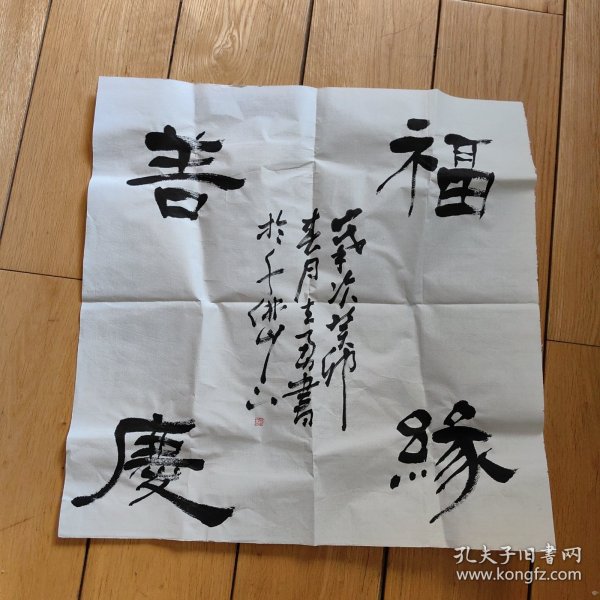 福緣
善慶
歲次癸卯
春月書
於千佛山下
孔夫子旧书网
www.kongfz.com